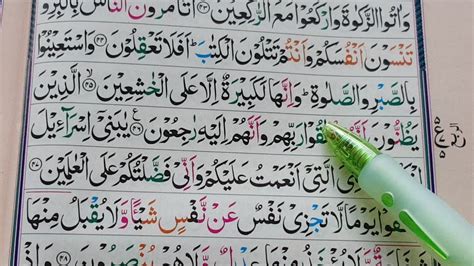 وَاٰتُوا الزَّكٰوةَ وَارْكَعُوْا مَعَ الرّٰكِعِيْنَ ﴿۴۳﴾ اَتَاْمُرُوْنَ النَّاسَ بِالْبِرِّ وَ
تَنْسَوْنَ اَنْفُسَكُمْ وَاَنْتُمْ تَتْلُوْنَ الْكِتٰبَ ؕ اَفَلَا تَعْقِلُوْنَ ﴿۴۴﴾ وَاسْتَعِيْنُوْا
بِالصَّبْرِ وَالصَّلٰوةِ ؕ وَاِنَّهَا لَكَبِيْرَةٌ اِلَّا عَلَى الْخٰشِعِيْنَ ﴿۴۵﴾ الَّذِيْنَ
يَظُنُّوْنَ اَنَّهُمْ مُّلٰقُوْا رَبِّهِمْ وَاَنَّهُمْ اِلَيْهِ رٰجِعُوْنَ ﴿۴۶﴾ يٰبَنِيْۤ اِسْرَآءِيْلَ
الَّتِيْۤ اَنْعَمْتُ عَلَيْكُمْ وَاَنِّيْ فَضَّلْتُكُمْ عَلَى الْعٰلَمِيْنَ ﴿۴۷﴾
يَوْمًا لَّا تَجْزِيْ نَفْسٌ عَنْ نَّفْسٍ شَيْـًٔا وَّلَا يُقْبَلُ مِنْهَا